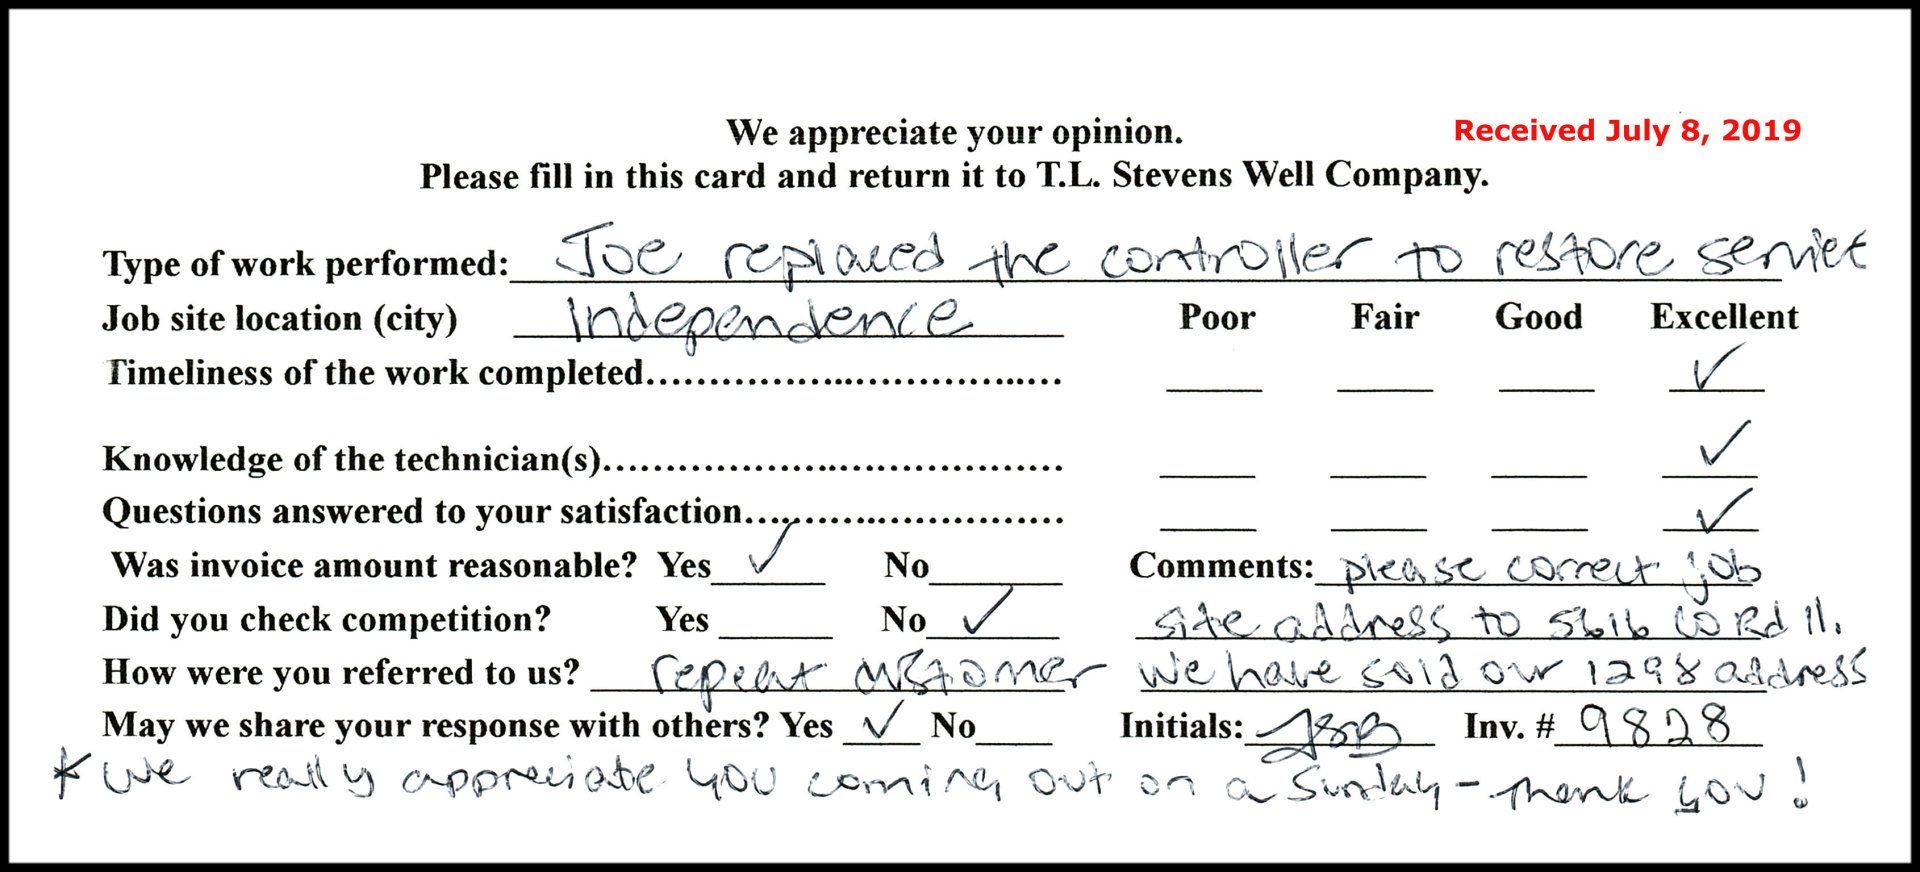 We appreciate your opinion.
Received July 8, 2019
Please fill in this card and return it to T.L. Stevens Well Company.
Type of work performed: Joe replaced the controller to restore service
Job site location (city) Independence Poor Fair Good Excellent
Timeliness of the work completed.................................... ____ ____ ____ ✓
Knowledge of the technician(s)..................................... ____ ____ ____ ✓
Questions answered to your satisfaction.......................... ____ ____ ____ ✓
Was invoice amount reasonable? Yes ✓ No____ Comments: please correct job
Did you check competition? Yes ____ No ✓ site address to 5616 CO Rd 11.
How were you referred to us? repeat customer We have sold our 1298 address
May we share your response with others? Yes ✓ No____ Initials: JSB Inv. # 9828
* We really appreciate you coming out on a Sunday - Thank you!